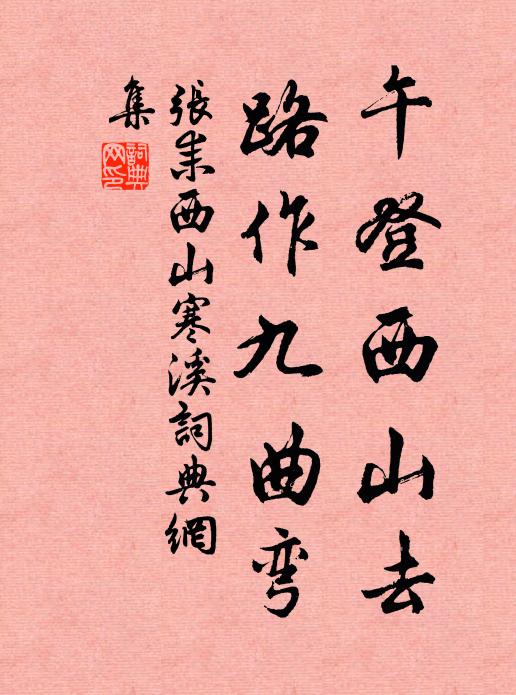 午登西山去
路作九曲弯
張耒西山寒溪詞典網
集
詞典
网印